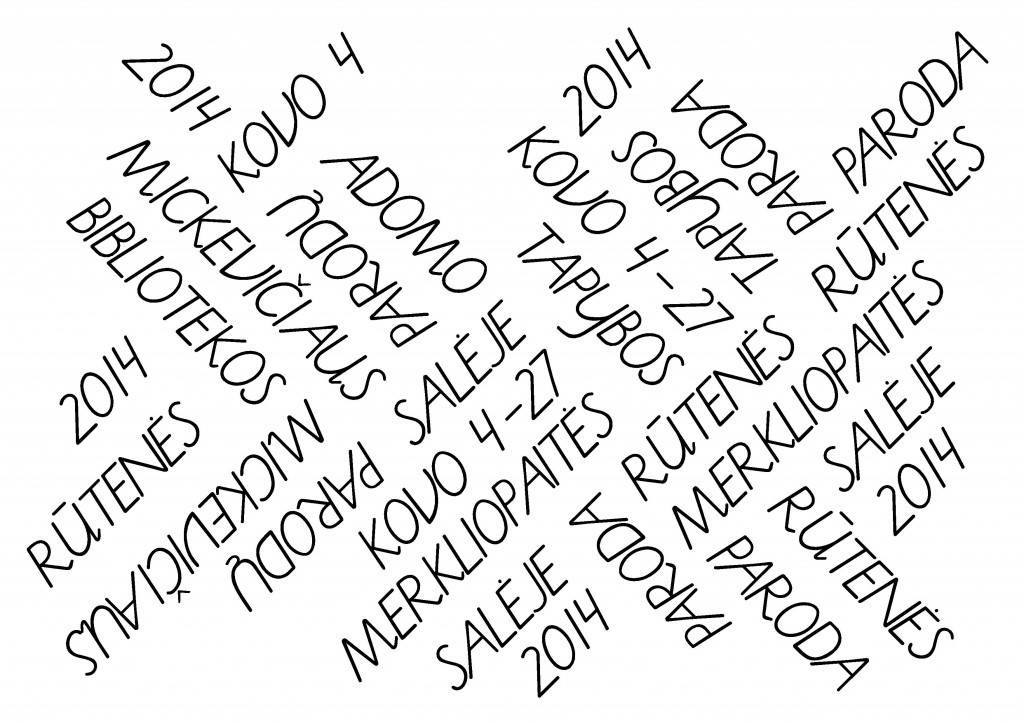 2014
KOVO 4
MICKEVIČIAUS
BIBLIOTEKOS
ADOMO
PARODŲ
2014
KOVO
4-27
TAPYBOS
PARODA
TAPYBOS
PARODA
RŪTENĖS
MERKLIOPAITĖS
SALĖJE
2014
2014
RŪTENĖS
MICKEVIČIAUS
PARODŲ
SALĖJE
KOVO 4-27
MERKLIOPAITĖS
SALĖJE
2014
RŪTENĖS
PARODA
PARODA
RŪTENĖS